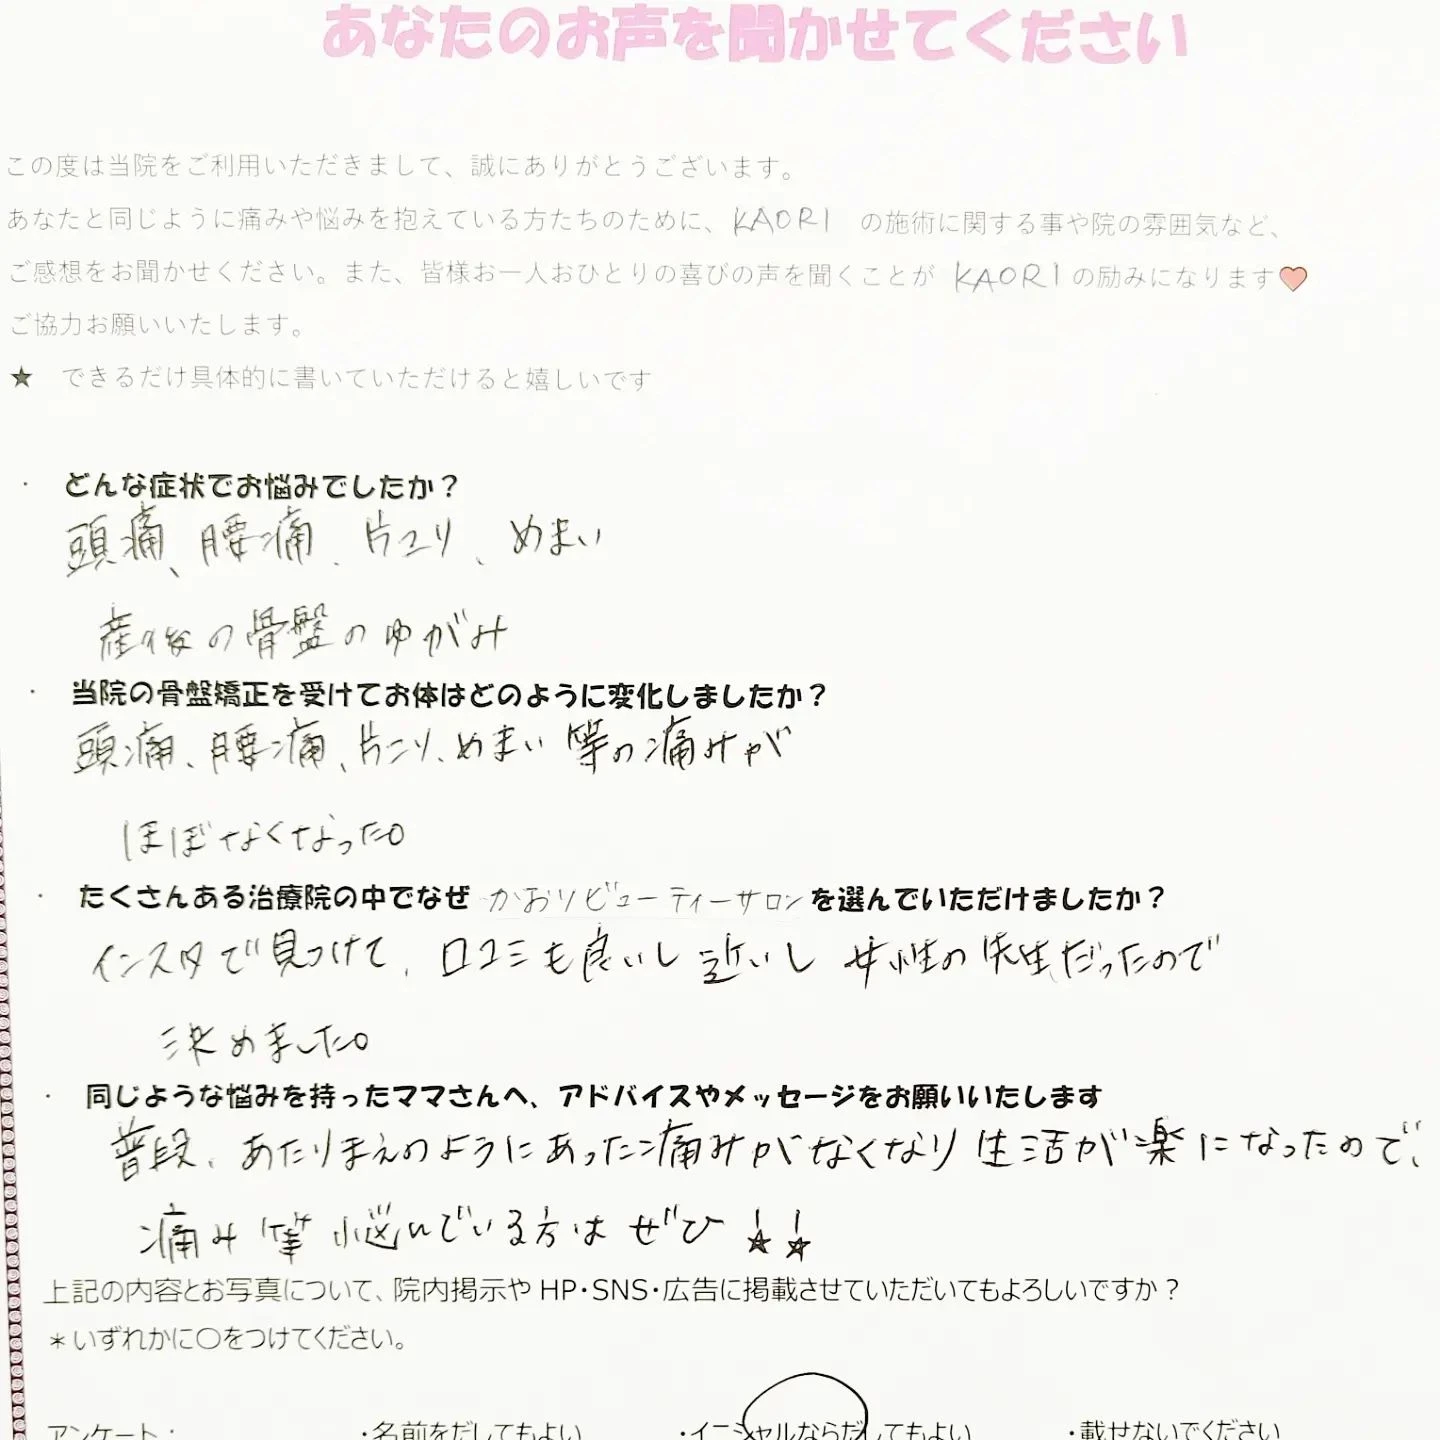 あなたのお声を聞かせてください
この度は当院をご利用いただきまして、誠にありがとうございます。
あなたと同じように痛みや悩みを抱えている方たちのために、KAORI の施術に関する事や院の雰囲気など、
ご感想をお聞かせください。また、皆様お一人おひとりの喜びの声を聞くことが KAORI の励みになります♥
ご協力お願いいたします。
★ できるだけ具体的に書いていただけると嬉しいです
・ どんな症状でお悩みでしたか？
頭痛、腰痛、片コリ、めまい
産後の骨盤のゆがみ
・ 当院の骨盤矯正を受けてお体はどのように変化しましたか？
頭痛、腰痛、片こり、めまい等の痛みが
ほぼなくなった。
・ たくさんある治療院の中でなぜ かおりビューティーサロン を選んでいただけましたか？
インスタで見つけて、口コミも良いし近いし女性の先生だったので
決めました。
・ 同じような悩みを持ったママさんへ、アドバイスやメッセージをお願いいたします
普段、あたりまえのようにあった痛みがなくなり生活が楽になったので、
痛み等悩んでいる方はぜひ!!
上記の内容とお写真について、院内掲示や HP・SNS・広告に掲載させていただいてもよろしいですか？
＊いずれかに〇をつけてください。
アンケート： ・名前をだしてもよい ・イニシャルならだしてもよい ・載せないでください